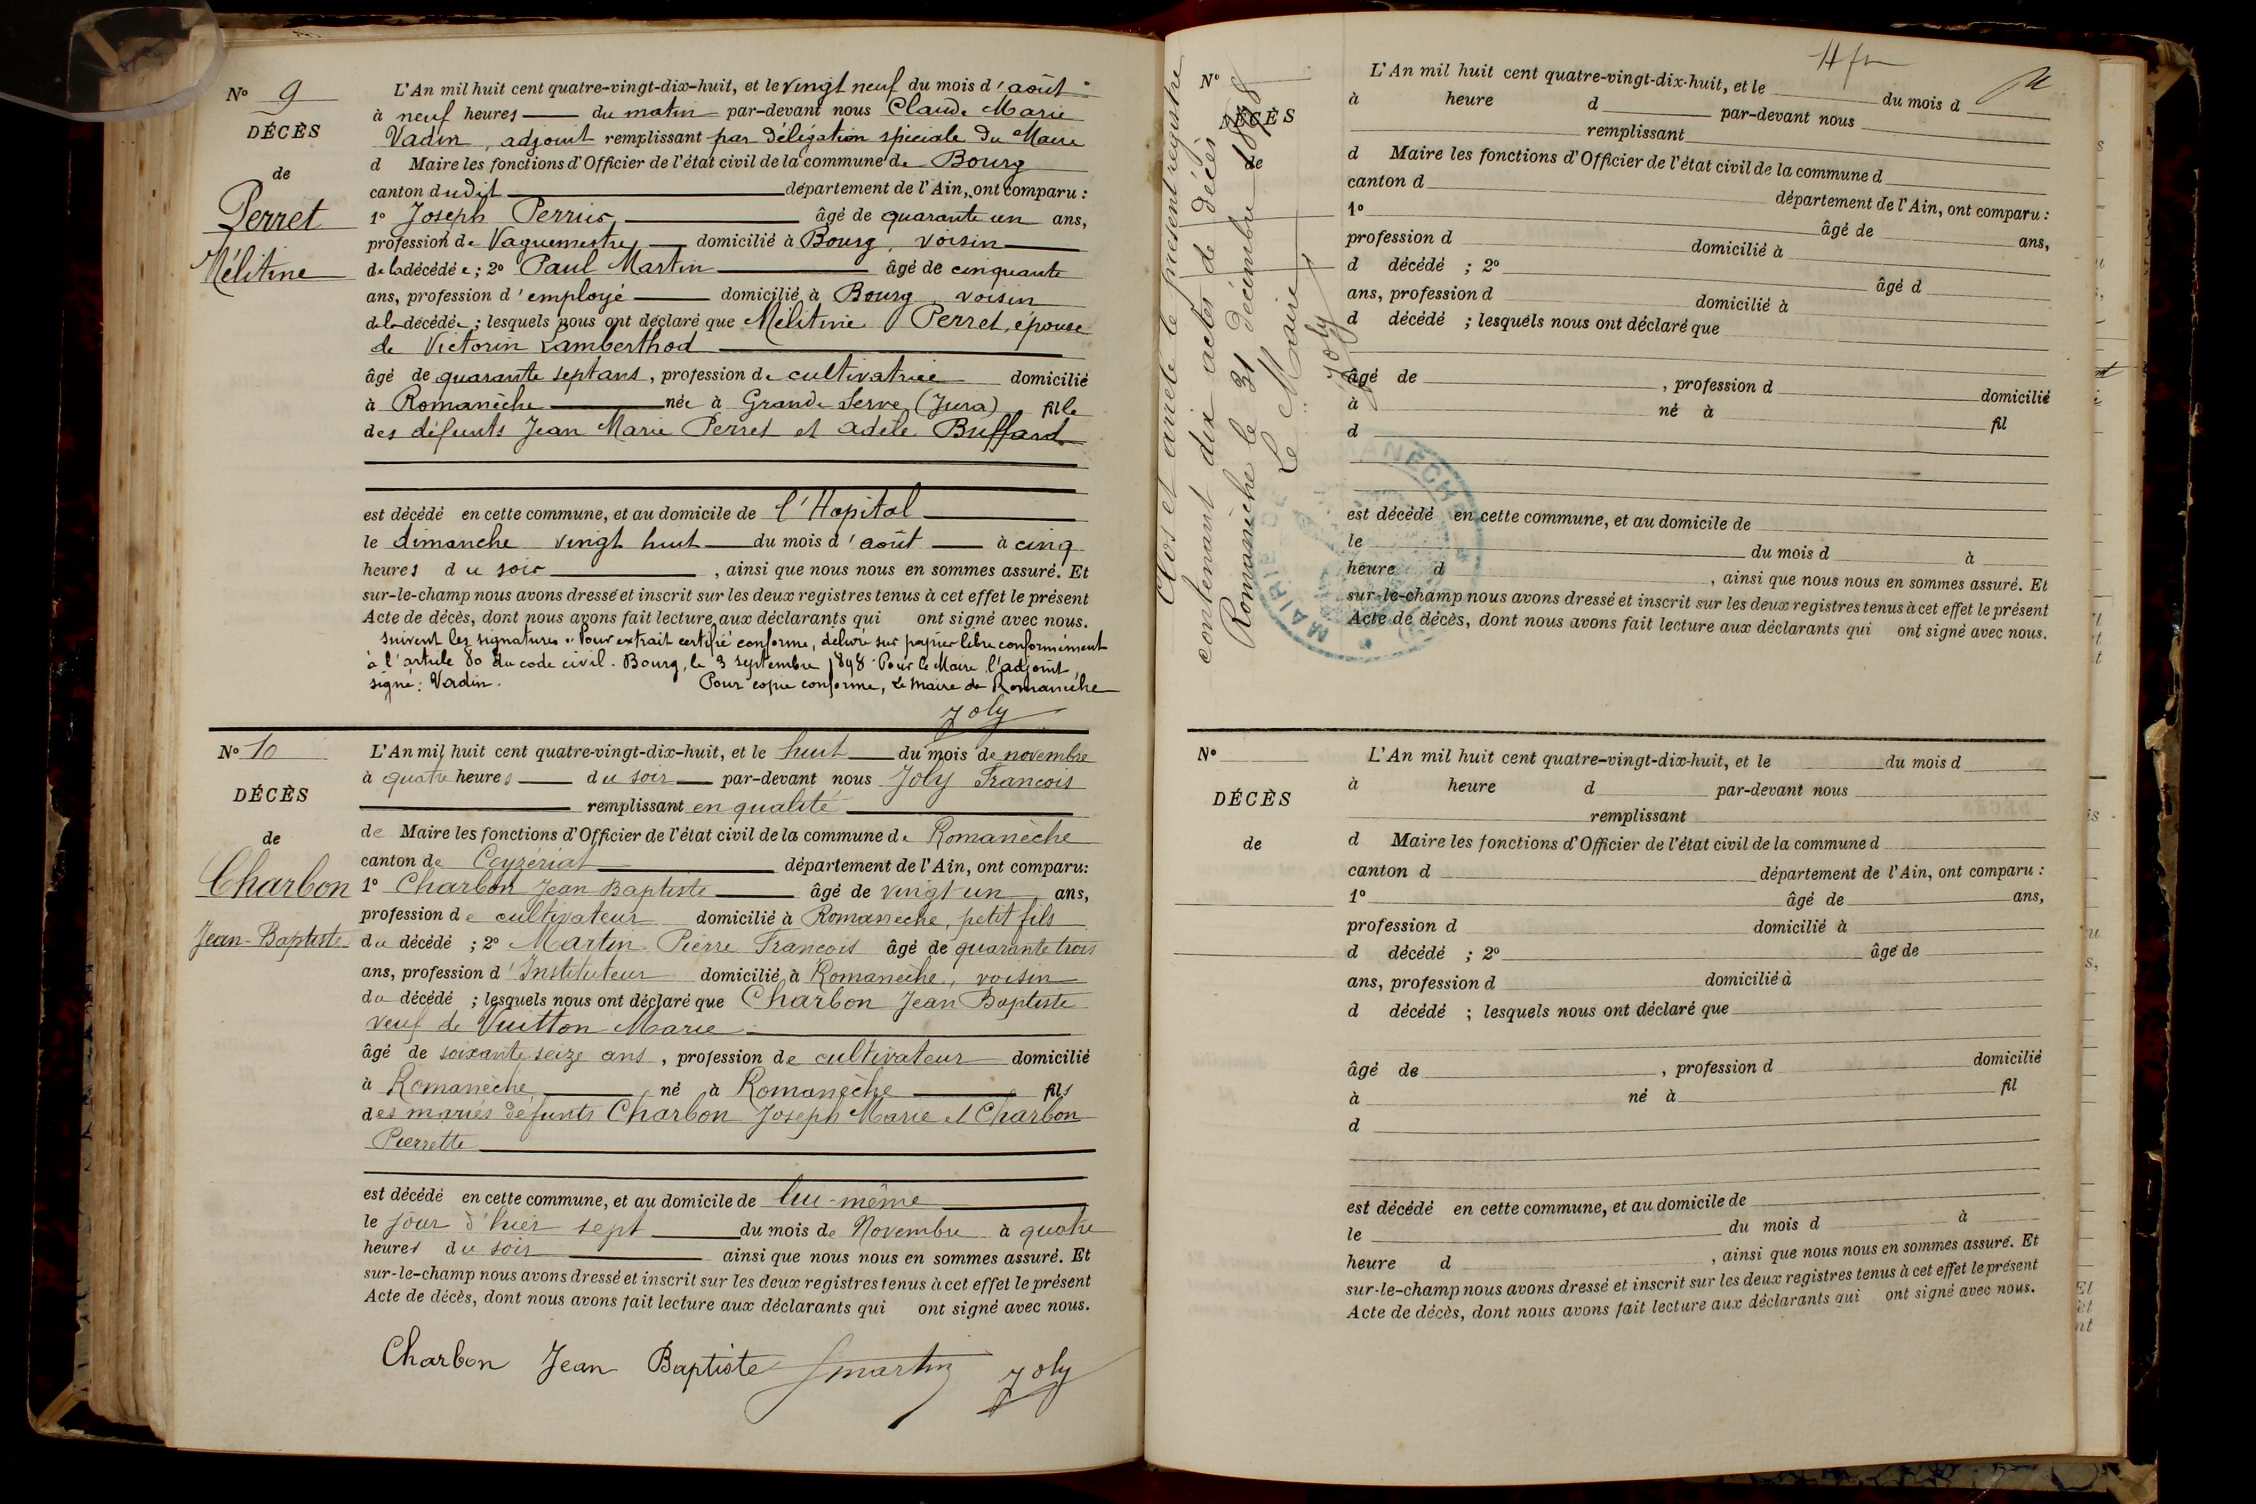 N° 9
DÉCÈS
de
Perret
Mélitine
L'An mil huit cent quatre-vingt-dix-huit, et le vingt neuf du mois d'août
à neuf heures du matin par-devant nous Claude Marie
Vadin, adjoint remplissant par délégation spéciale du Maire
d Maire les fonctions d'Officier de l'état civil de la commune de Bourg
canton dudit département de l'Ain, ont comparu :
1° Joseph Perrier âgé de quarante un ans,
profession de Vaguemestre domicilié à Bourg, voisin
de la décédée ; 2° Paul Martin âgé de cinquante
ans, profession d'employé domicilié à Bourg voisin
de la décédée ; lesquels nous ont déclaré que Mélitine Perret, épouse
de Victorin Lamberthod
âgé de quarante sept ans, profession de cultivatrice domicilié
à Romanèche née à Grande Serve (Jura) fille
des défunts Jean Marie Perret et Adèle Buffard
est décédé en cette commune, et au domicile de l'Hopital
le dimanche vingt huit du mois d'août à cinq
heures du soir , ainsi que nous nous en sommes assuré. Et
sur-le-champ nous avons dressé et inscrit sur les deux registres tenus à cet effet le présent
Acte de décès, dont nous avons fait lecture aux déclarants qui ont signé avec nous.
suivent les signatures. Pour extrait certifié conforme, délivré sur papier libre conformément
à l'article 80 du code civil. Bourg, le 3 septembre 1898. Pour le Maire l'adjoint,
signé : Vadin. Pour copie conforme, Le maire de Romanèche
Joly
N° 10
DÉCÈS
de
Charbon
Jean-Baptiste
L'An mil huit cent quatre-vingt-dix-huit, et le huit du mois de novembre
à quatre heures du soir par-devant nous Joly François
remplissant en qualité
de Maire les fonctions d'Officier de l'état civil de la commune de Romanèche
canton de Ceyzériat département de l'Ain, ont comparu:
1° Charbon Jean Baptiste âgé de vingt-un ans,
profession de cultivateur domicilié à Romanèche, petit fils
du décédé ; 2° Martin Pierre François âgé de quarante trois
ans, profession d'Instituteur domicilié à Romanèche, voisin
du décédé ; lesquels nous ont déclaré que Charbon Jean Baptiste
veuf de Vuitton Marie
âgé de soixante seize ans, profession de cultivateur domicilié
à Romanèche, né à Romanèche fils
des mariés défunts Charbon Joseph Marie et Charbon
Pierrette
est décédé en cette commune, et au domicile de lui-même
le jour d'hier sept du mois de Novembre à quatre
heures du soir ainsi que nous nous en sommes assuré. Et
sur-le-champ nous avons dressé et inscrit sur les deux registres tenus à cet effet le présent
Acte de décès, dont nous avons fait lecture aux déclarants qui ont signé avec nous.
Charbon Jean Baptiste Martin Joly
Clos et arrêté le présent registre
contenant dix actes de décès
Romanèche le 31 décembre 1898
Le Maire,
Joly
MAIRIE DE ROMANÈCHE
N°
DÉCÈS
de
L'An mil huit cent quatre-vingt-dix-huit, et le du mois d
à heure d par-devant nous
remplissant
d Maire les fonctions d'Officier de l'état civil de la commune d
canton d département de l'Ain, ont comparu :
1° âgé de ans,
profession d domicilié à
d décédé ; 2° âgé d
ans, profession d domicilié à
d décédé ; lesquels nous ont déclaré que
âgé de , profession d domicilié
à né à fil
d
est décédé en cette commune, et au domicile de
le du mois d à
heure d , ainsi que nous nous en sommes assuré. Et
sur-le-champ nous avons dressé et inscrit sur les deux registres tenus à cet effet le présent
Acte de décès, dont nous avons fait lecture aux déclarants qui ont signé avec nous.
N°
DÉCÈS
de
L'An mil huit cent quatre-vingt-dix-huit, et le du mois d
à heure d par-devant nous
remplissant
d Maire les fonctions d'Officier de l'état civil de la commune d
canton d département de l'Ain, ont comparu :
1° âgé de ans,
profession d domicilié à
d décédé ; 2° âgé de
ans, profession d domicilié à
d décédé ; lesquels nous ont déclaré que
âgé de , profession d domicilié
à né à fil
d
est décédé en cette commune, et au domicile de
le du mois d à
heure d , ainsi que nous nous en sommes assuré. Et
sur-le-champ nous avons dressé et inscrit sur les deux registres tenus à cet effet le présent
Acte de décès, dont nous avons fait lecture aux déclarants qui ont signé avec nous.